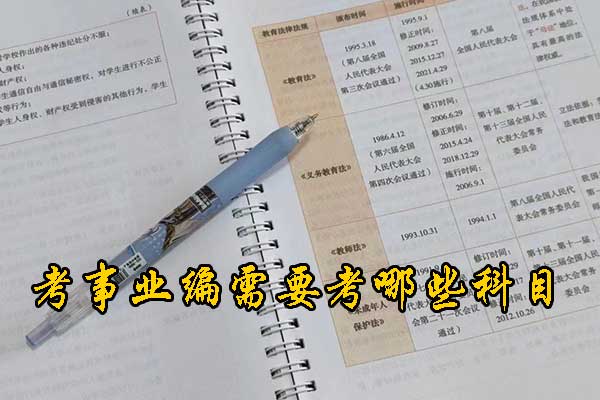 （续表）
对学校作出的各种违纪处分不服；
人身权；
财产权；
学生通信自由与通信秘密权，对学生进行不公正
等行为；
学生人身权、财产权受到侵害的其他行为，学生
教育法律法规
颁布时间
施行时间
《教育法》
1995.3.18
（第八届全国
人民代表大会
第三次会议通过）
1995.9.1
修正时间：
2009.8.27
2015.12.27
2021.4.29
（4.30施行）
第八届
全国人民代表大会
法体系中处
于“母法”地位，
具有最高的法
律权威。
《义务教育法》
1986.4.12
（第六届全国
人民代表大会
第四次会议通过）
修订时间：
2006.6.29
修正时间：
2015.4.24
2018.12.29
施行时间：
2006.9.1
第十届、第十二届、
第十三届全国人民
代表大会常务
委员会
立法依据：
法和教育法
《教师法》
1993.10.31
1994.1.1
第八届全国人民代
表大会常务委员会
未成年人
保护法》
会第二十一次会议
通过）
修订时间：
2012.10.26
第十届、第十一届、
人民代表
委员会
考事业编需要考哪些科目